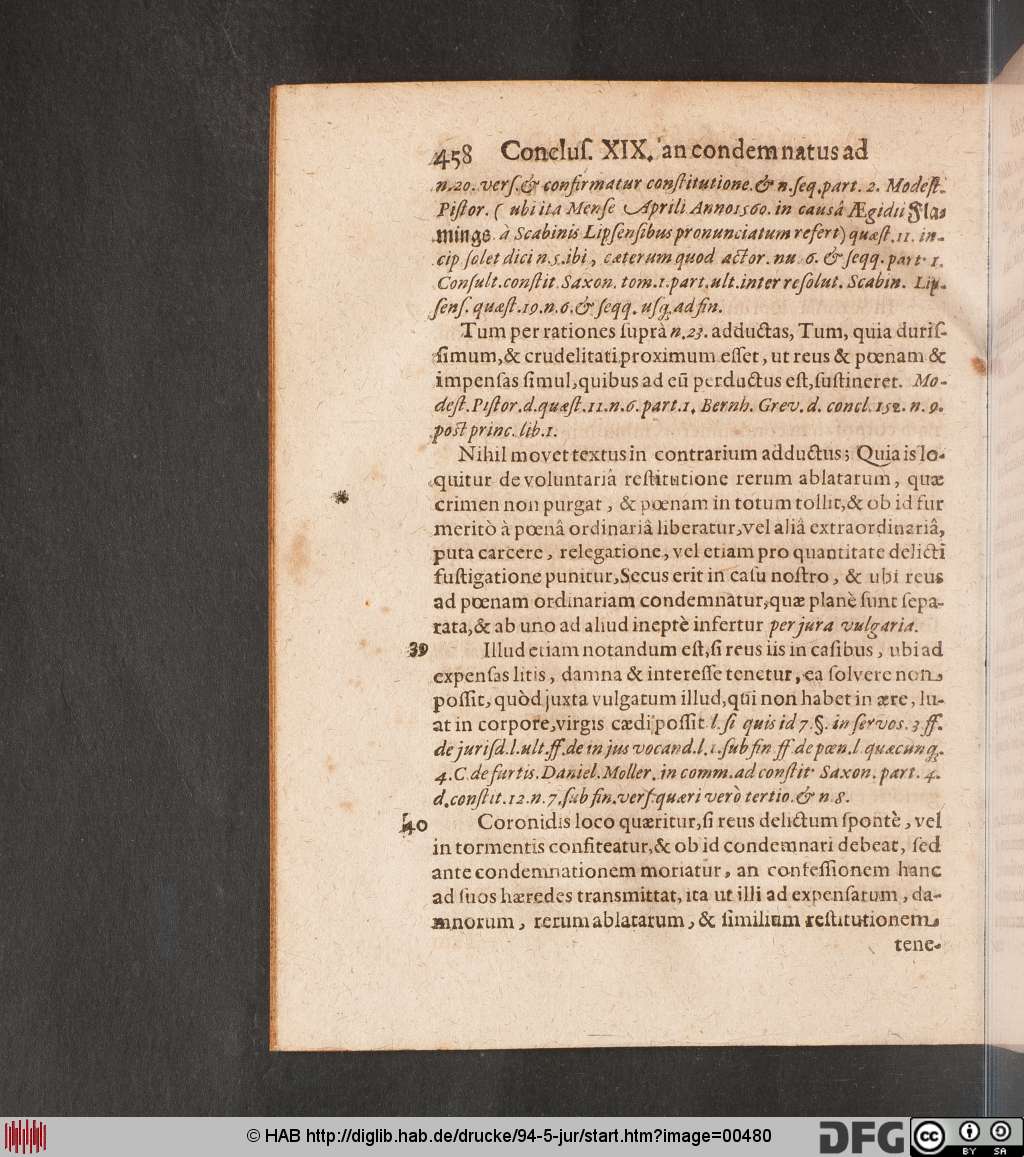 458 Concluſ. XIX. an condemnatus ad
n.20. verſ. & confirmatur conſtitutione. & n. ſeq. part. 2. Modeſt.
Piſtor. ( ubi ita Menſe Aprili Anno 1560. in causâ Ægidii Fla-
mings à Scabinis Lipſenſibus pronunciatum refert) quæſt. 11. in-
cip ſolet dici n. 5. ibi, cæterum quod actor. nu. 6. & ſeqq. part. 1.
Conſult. conſtit. Saxon. tom. 1. part. ult. inter reſolut. Scabin. Lip-
ſenſ. quæſt. 19. n. 6. & ſeqq. uſq; ad fin.
Tum per rationes ſuprà n. 23. adductas, Tum, quia duriſ-
ſimum, & crudelitati proximum eſſet, ut reus & pœnam &
impenſas ſimul, quibus ad eũ perductus eſt, ſuſtineret. Mo-
deſt. Piſtor. d. quæſt. 11. n. 6. part. 1. Bernh. Grev. d. concl. 152. n. 9.
poſt princ. lib. 1.
Nihil movet textus in contrarium adductus; Quia is lo-
quitur de voluntariâ reſtitutione rerum ablatarum, quæ
crimen non purgat, & pœnam in totum tollit, & ob id fur
meritò à pœnâ ordinariâ liberatur, vel aliâ extraordinariâ,
puta carcere, relegatione, vel etiam pro quantitate delicti
fuſtigatione punitur, Secus erit in caſu noſtro, & ubi reus
ad pœnam ordinariam condemnatur, quæ planè ſunt ſepa-
rata, & ab uno ad aliud ineptè infertur per jura vulgaria.
39 Illud etiam notandum eſt, ſi reus iis in caſibus, ubi ad
expenſas litis, damna & intereſſe tenetur, ea ſolvere non
poſſit, quòd juxta vulgatum illud, qui non habet in ære, lu-
at in corpore, virgis cædi poſſit l. ſi quis id 7. §. in ſervos. 3. ff.
de juriſd. l. ult. ff. de in jus vocand. l. 1. ſub fin ff de pœn. l. quæcunq;
4. C. de furtis. Daniel. Moller. in comm. ad conſtit Saxon. part. 4.
d. conſtit. 12. n. 7. ſub fin. verſ. quæri verò tertio. & n 8.
40 Coronidis loco quæritur, ſi reus delictum ſpontè, vel
in tormentis confiteatur, & ob id condemnari debeat, ſed
ante condemnationem moriatur, an confeſſionem hanc
ad ſuos hæredes transmittat, ita ut illi ad expenſarum, da-
mnorum, rerum ablatarum, & ſimilium reſtitutionem
tene-
© HAB http://diglib.hab.de/drucke/94-5-jur/start.htm?image=00480
DFG
cc BY SA